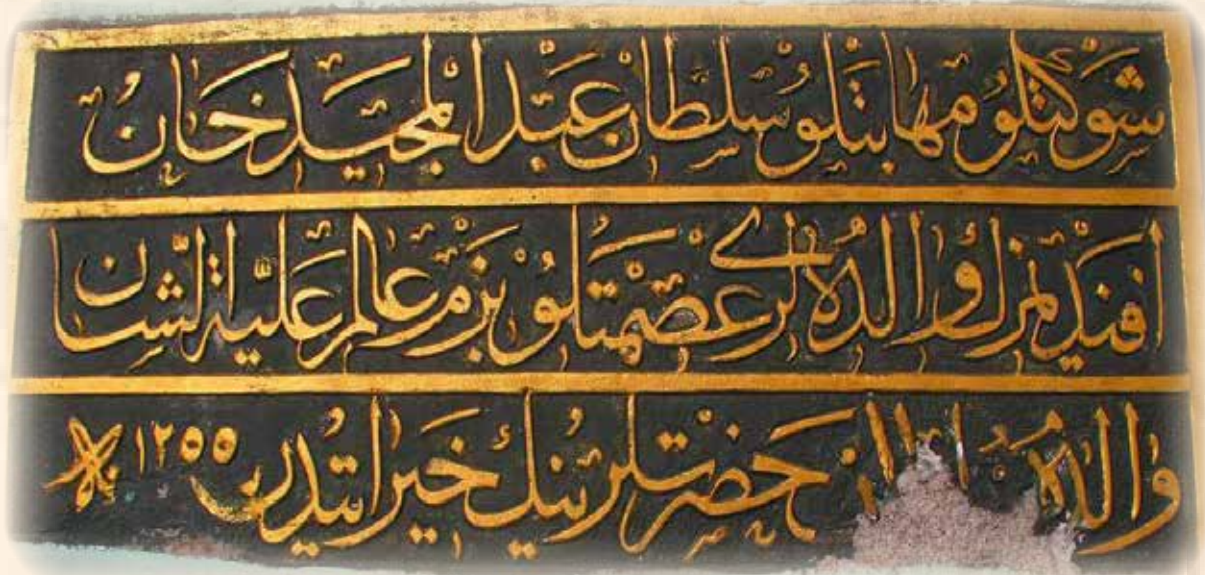 شوكتلو مهابتلو سلطان عبد المجيد خان
افنديمزك والده لرى عصمتلو بزم عالم علية الشان
والده حضرتلرينك خيراتيدر ١٢٥٥